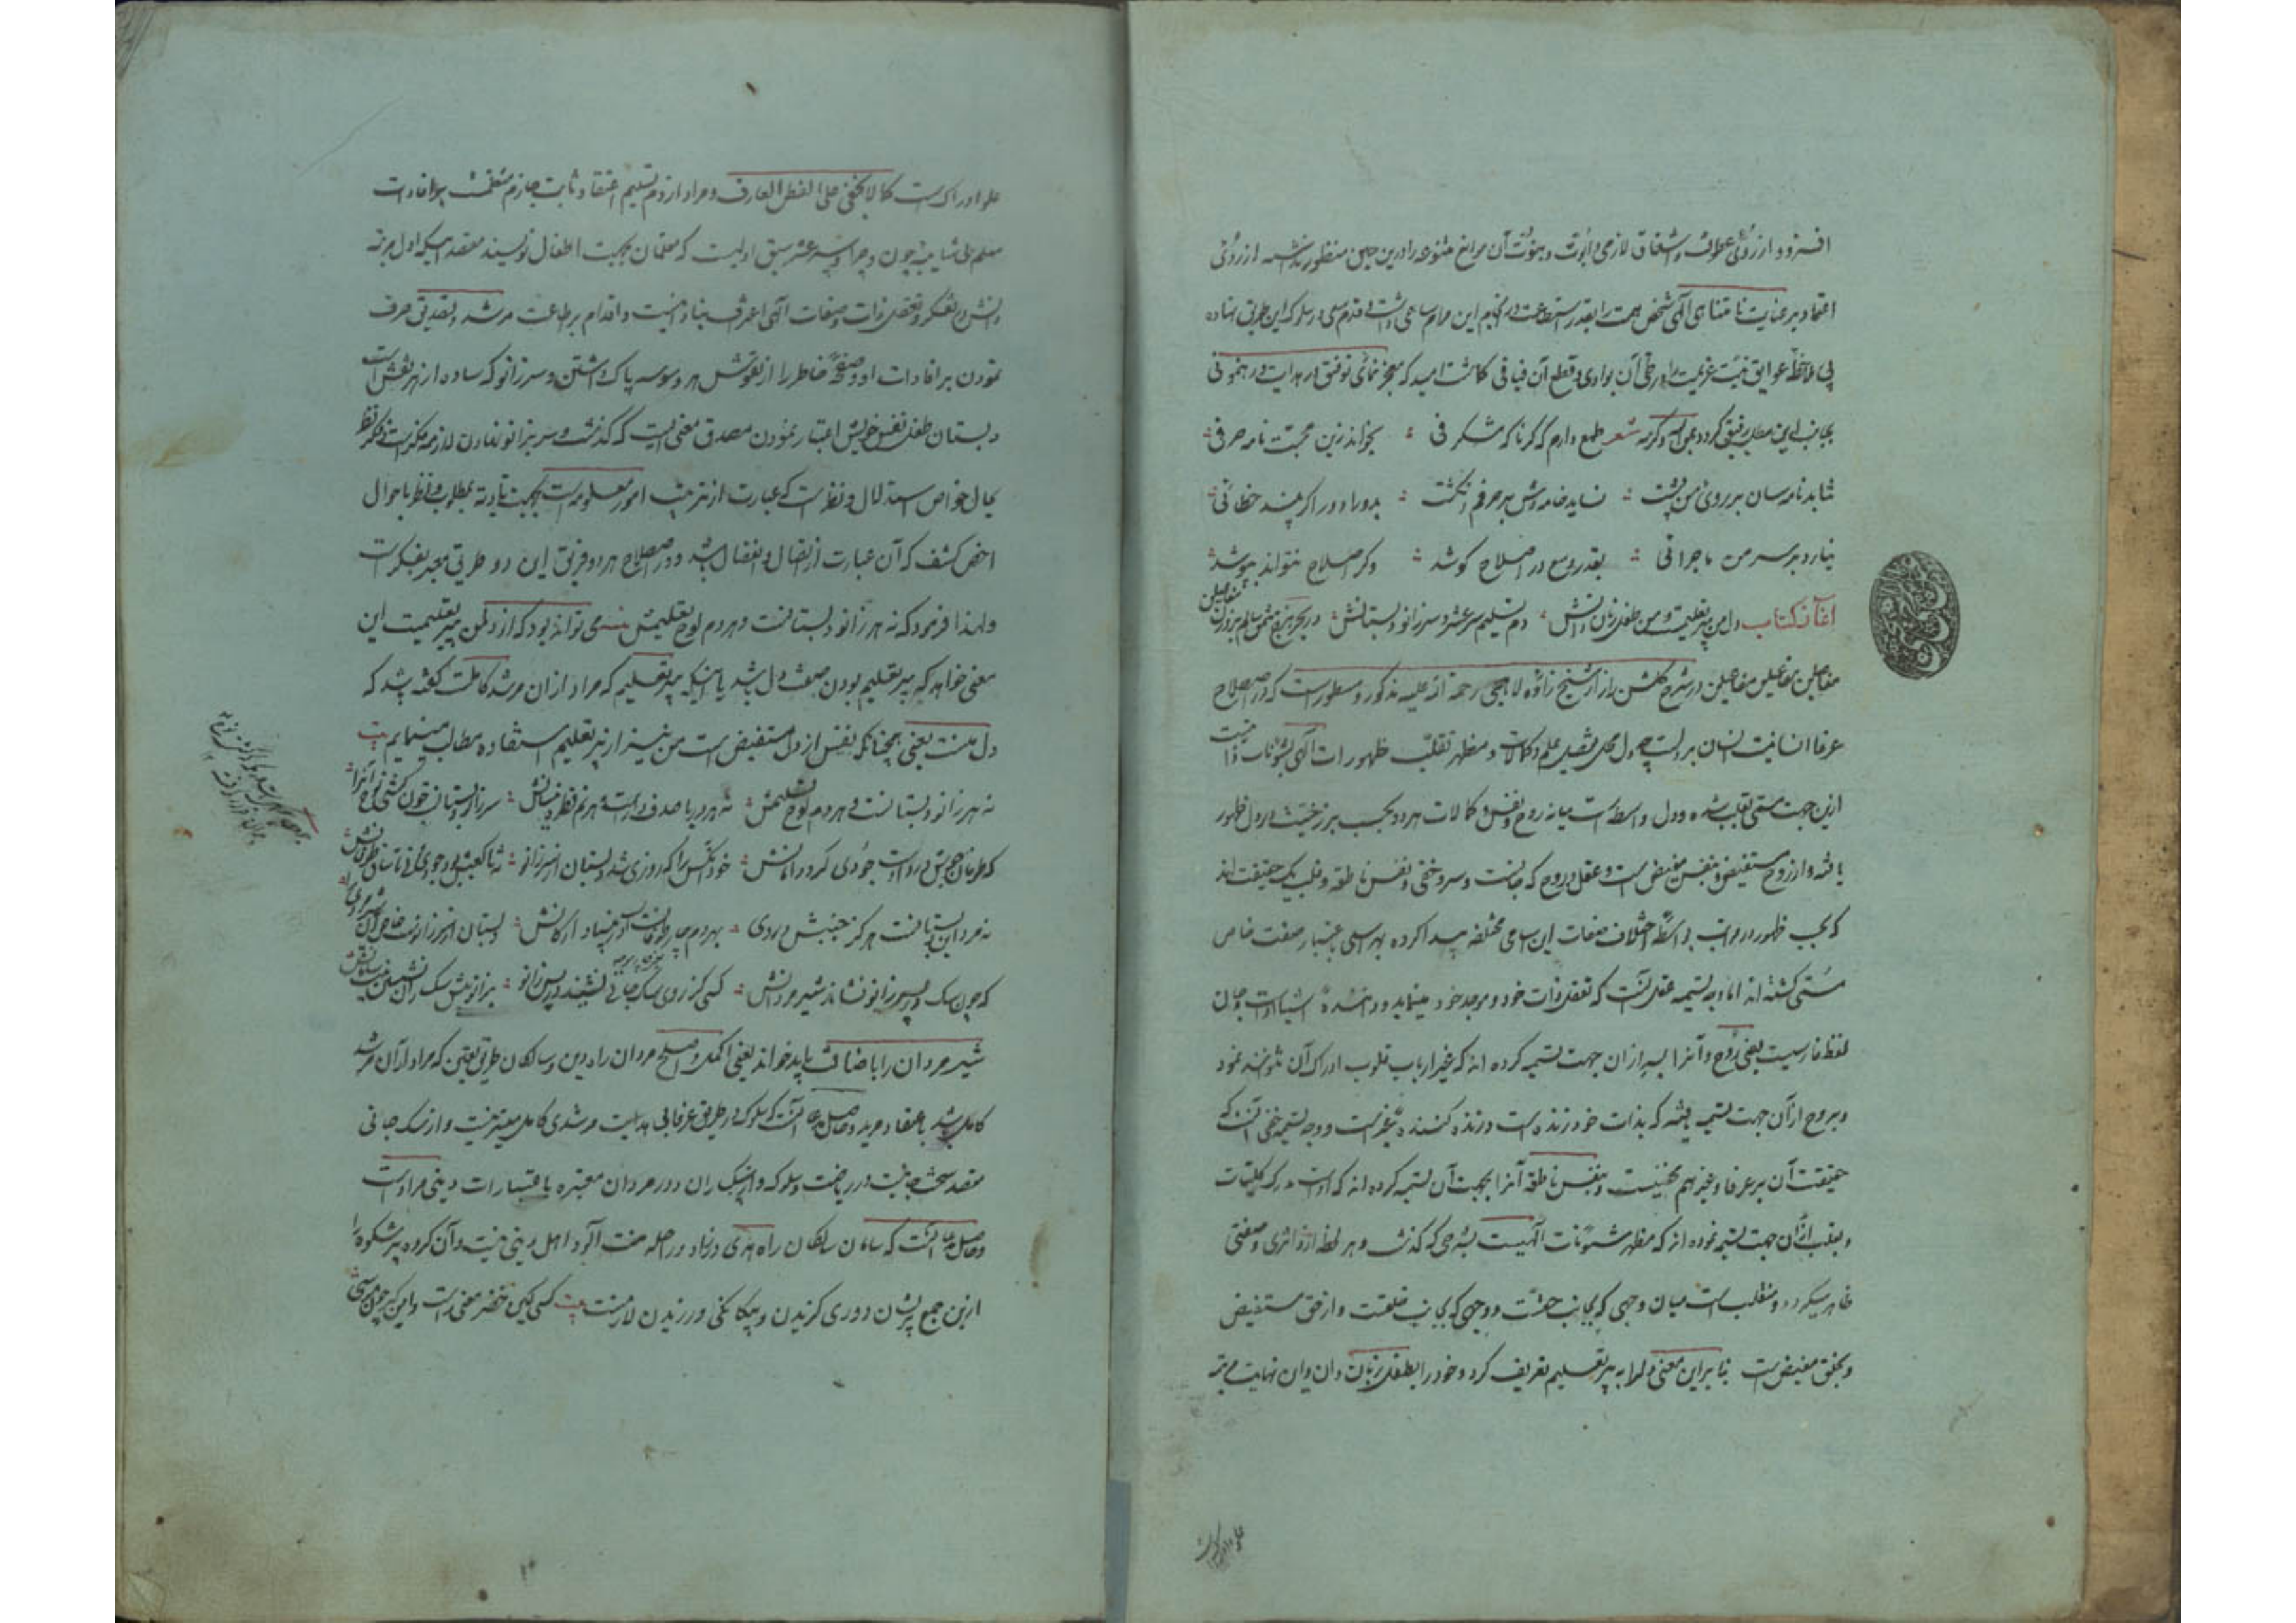 افزود از روی عطوفت و اشفاق لازمهٔ ابوت و بنوت آن موانع متنوعه را درین حین منظور نداشته از روی
اعتماد بر عنایت نامتناهی الهی شخص همت را بقدر استطاعت در انجام این مرام ساعی داشت و قدم سعی در سلوک این طریق نهاده
بی ملاحظهٔ عوایق نیت عزیمت را در طی آن بوادی و قطع آن فیافی گماشت امید که معجز نمائی توفیق در هدایت و رهنمونی
بجانب این مطلب رفیق گردد شعر طمع دارم که گر ناگه شگرفی بخواند زین محبت نامه حرفی
نتابد نامه سان بر روی من پشت نساید خامه وش بر حرفم انگشت بدوراد دور اگر بیند خطائی
نیارد بر سر من ماجرائی بقدر وسع در اصلاح کوشد وگر اصلاح نتواند بپوشد
آغاز کتاب دل من پیر تعلیمست و من طفل زبان دانش دم تسلیم سر عشر و سر زانو دبستانش در بحر هزج مثمن سالم بر وزن مفاعیلن
مفاعیلن مفاعیلن مفاعیلن در شرح گلشن راز از شیخ زاده لاهجی رحمة الله علیه مذکور و مسطور است که در اصطلاح
عرفا انسانیت انسان بدلست چه دل محل تفصیل علم و کمالات و مظهر تقلب ظهورات الهی بشئونات ذاتیست
ازین جهت مسمی بقلب شده و دل واسطه است میانه روح و نفس و کمالات هر دو بحسب برزخیت در دل ظهور
یافته و از روح مستفیض و بنفس مفیض است و عقل و روح که جانست و سر و خفی و نفس ناطقه و قلب یک حقیقت اند
که بحسب ظهور در مراتب بواسطهٔ اختلاف صفات این اسامی مختلفه پیدا کرده بهر اسمی باعتبار صفت خاص
مسمی گشته اند اما وجه تسمیه عقل آنست که تعقل ذات خود و موجد خود مینماید و دانندهٔ اشیا اوست و جان
لفظ فارسیست بمعنی روح و آنرا بسر از آن جهت تسمیه کرده اند که غیر ارباب قلوب ادراک آن نتوانند نمود
و بروح از آن جهت تسمیه یافته که بذات خود زنده است و زنده کنندهٔ غیر است و وجه تسمیه خفی آنست که
حقیقت آن بر عرفا و غیرهم مخفیست و بنفس ناطقه آنرا بجهت آن تسمیه کرده اند که اوست مدرک کلیات
و بقلب از آن جهت تسمیه نموده اند که مظهر شئونات الهیست بشرحی که گذشت و هر لحظه ازو اثری و صفتی
ظاهر میگردد و منقلب است میان وجهی که بجانب حقست و وجهی که بجانب خلقست و از حق مستفیض
و بخلق مفیض است بنا براین معنی دل را به پیر تعلیم تعریف کرد و خود را بطفل زبان دان و آن نهایت مرتبهٔ
علو ادراکست
علو ادراکست کما لا یخفی علی الفطن العارف و مراد از دم تسلیم اعتقاد ثابت جازم متعلمست بر افادت
معلم بی شایبهٔ چون و چرا و سر عشر سبق اولیست که معلمان بجهت اطفال نویسند مقصد اینکه اول مرتبه
دانش در تفکر و تعقل ذات و صفات الهی اعتراف بنادانیست و اقدام بر طاعت مرشد و تصدیق صرف
نمودن بر افادات او و صفحهٔ خاطر را از نقوش هر وسوسه پاک داشتن و سر زانو که ساده از هر نقش است
دبستان طفل نفس خویش اعتبار نمودن مصدق معنی است که گذشت و سر بزانو نهادن لازمهٔ فکر است و فکر نظر
بحال خواص استدلال و نظر است که عبارت از ترتیب امور معلومه است بجهت تأدیه بمطلوب و نظر باحوال
اخص کشف که آن عبارت از اتصال و انفصال باشد و در اصطلاح هر دو فریق این دو طریق معبر بفکرست
ولهذا فرمود که نه هر زانو دبستانست و هر دم لوح تعلیمش می تواند بود که از دل من پیر تعلیمست این
معنی خواهد که پیر تعلیم بودن صفت دل باشد یا اینکه پیر تعلیم که مراد از آن مرشد کاملست گفته باشد که
دل منست یعنی همچنانکه نفس از دل مستفیض است من نیز از پیر تعلیم استفاده مطالب مینمایم بیت
نه هر زانو دبستانست و هر دم لوح تسلیمش نه هر دریا صدف دارست و هر نم قطره نیسانش سر زانو دبستانی چون کشتی نوح آنرا
که طوفان جوش درد اوست جودی گرد دامانش خود آنکس را که روزی شد دبستان از سر زانو نه تا کعبش بود جودی و نی تا ساق طوفانش
نه مرد این دبستانست هر کز جنبش دردی بهر دم چار طوفان نیست در بنیاد ارکانش دبستان از سر زانوست خاص آن شیر مردی را
که چون سگ در پس زانو نشاند شیر مردانش کسی کز روی سگ جانی نشیند در پس زانو بزانو پیش سگساران نشستن نیست سامانش
شیر مردان را باضافت باید خواند یعنی اکمل و اصلح مردان راه دین و سالکان طریق یقین که مراد از آن مرشد
کامل باشد باعتقاد مرید و حاصل مدعا آنست که سلوک در طریق عرفا بی هدایت مرشدی کامل میسر نیست و از سگ جانی
مقصد سخت جانیست در ریاضت و سلوک و از سگساران دور مردان معتبره باعتبارات دینی مراد است
و حاصل مدعا آنست که سامان سالکان راه هدی و زاد و راحلهٔ صفت آلود اهل دینی نیست و آن گروه پر شکوه را
ازین جمع پریشان دوری گزیدن و بیگانگی ورزیدن لازمست بیت کسی کین خضر معنی راست دامن گیر چون موسی